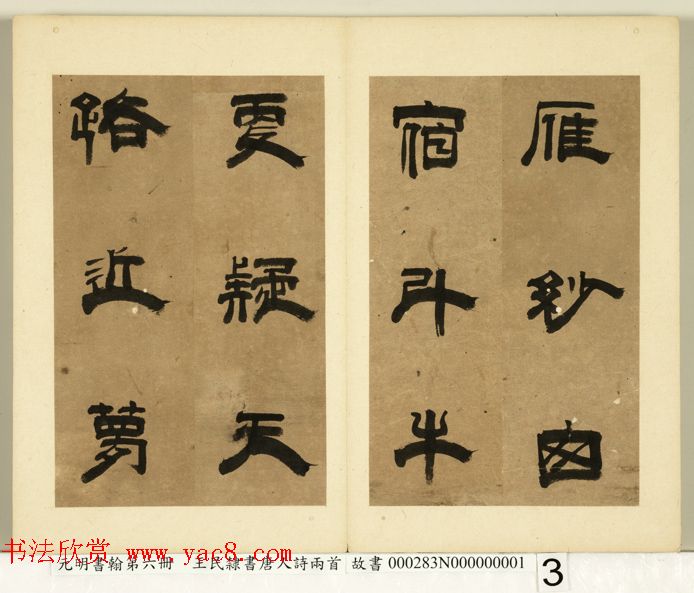 雁紗囪
宿斗牛
更疑天
路近夢
书法欣赏 www.yac8.com
元明書翰第六冊 王民隸書唐人詩兩首 故書 000283N000000001
3